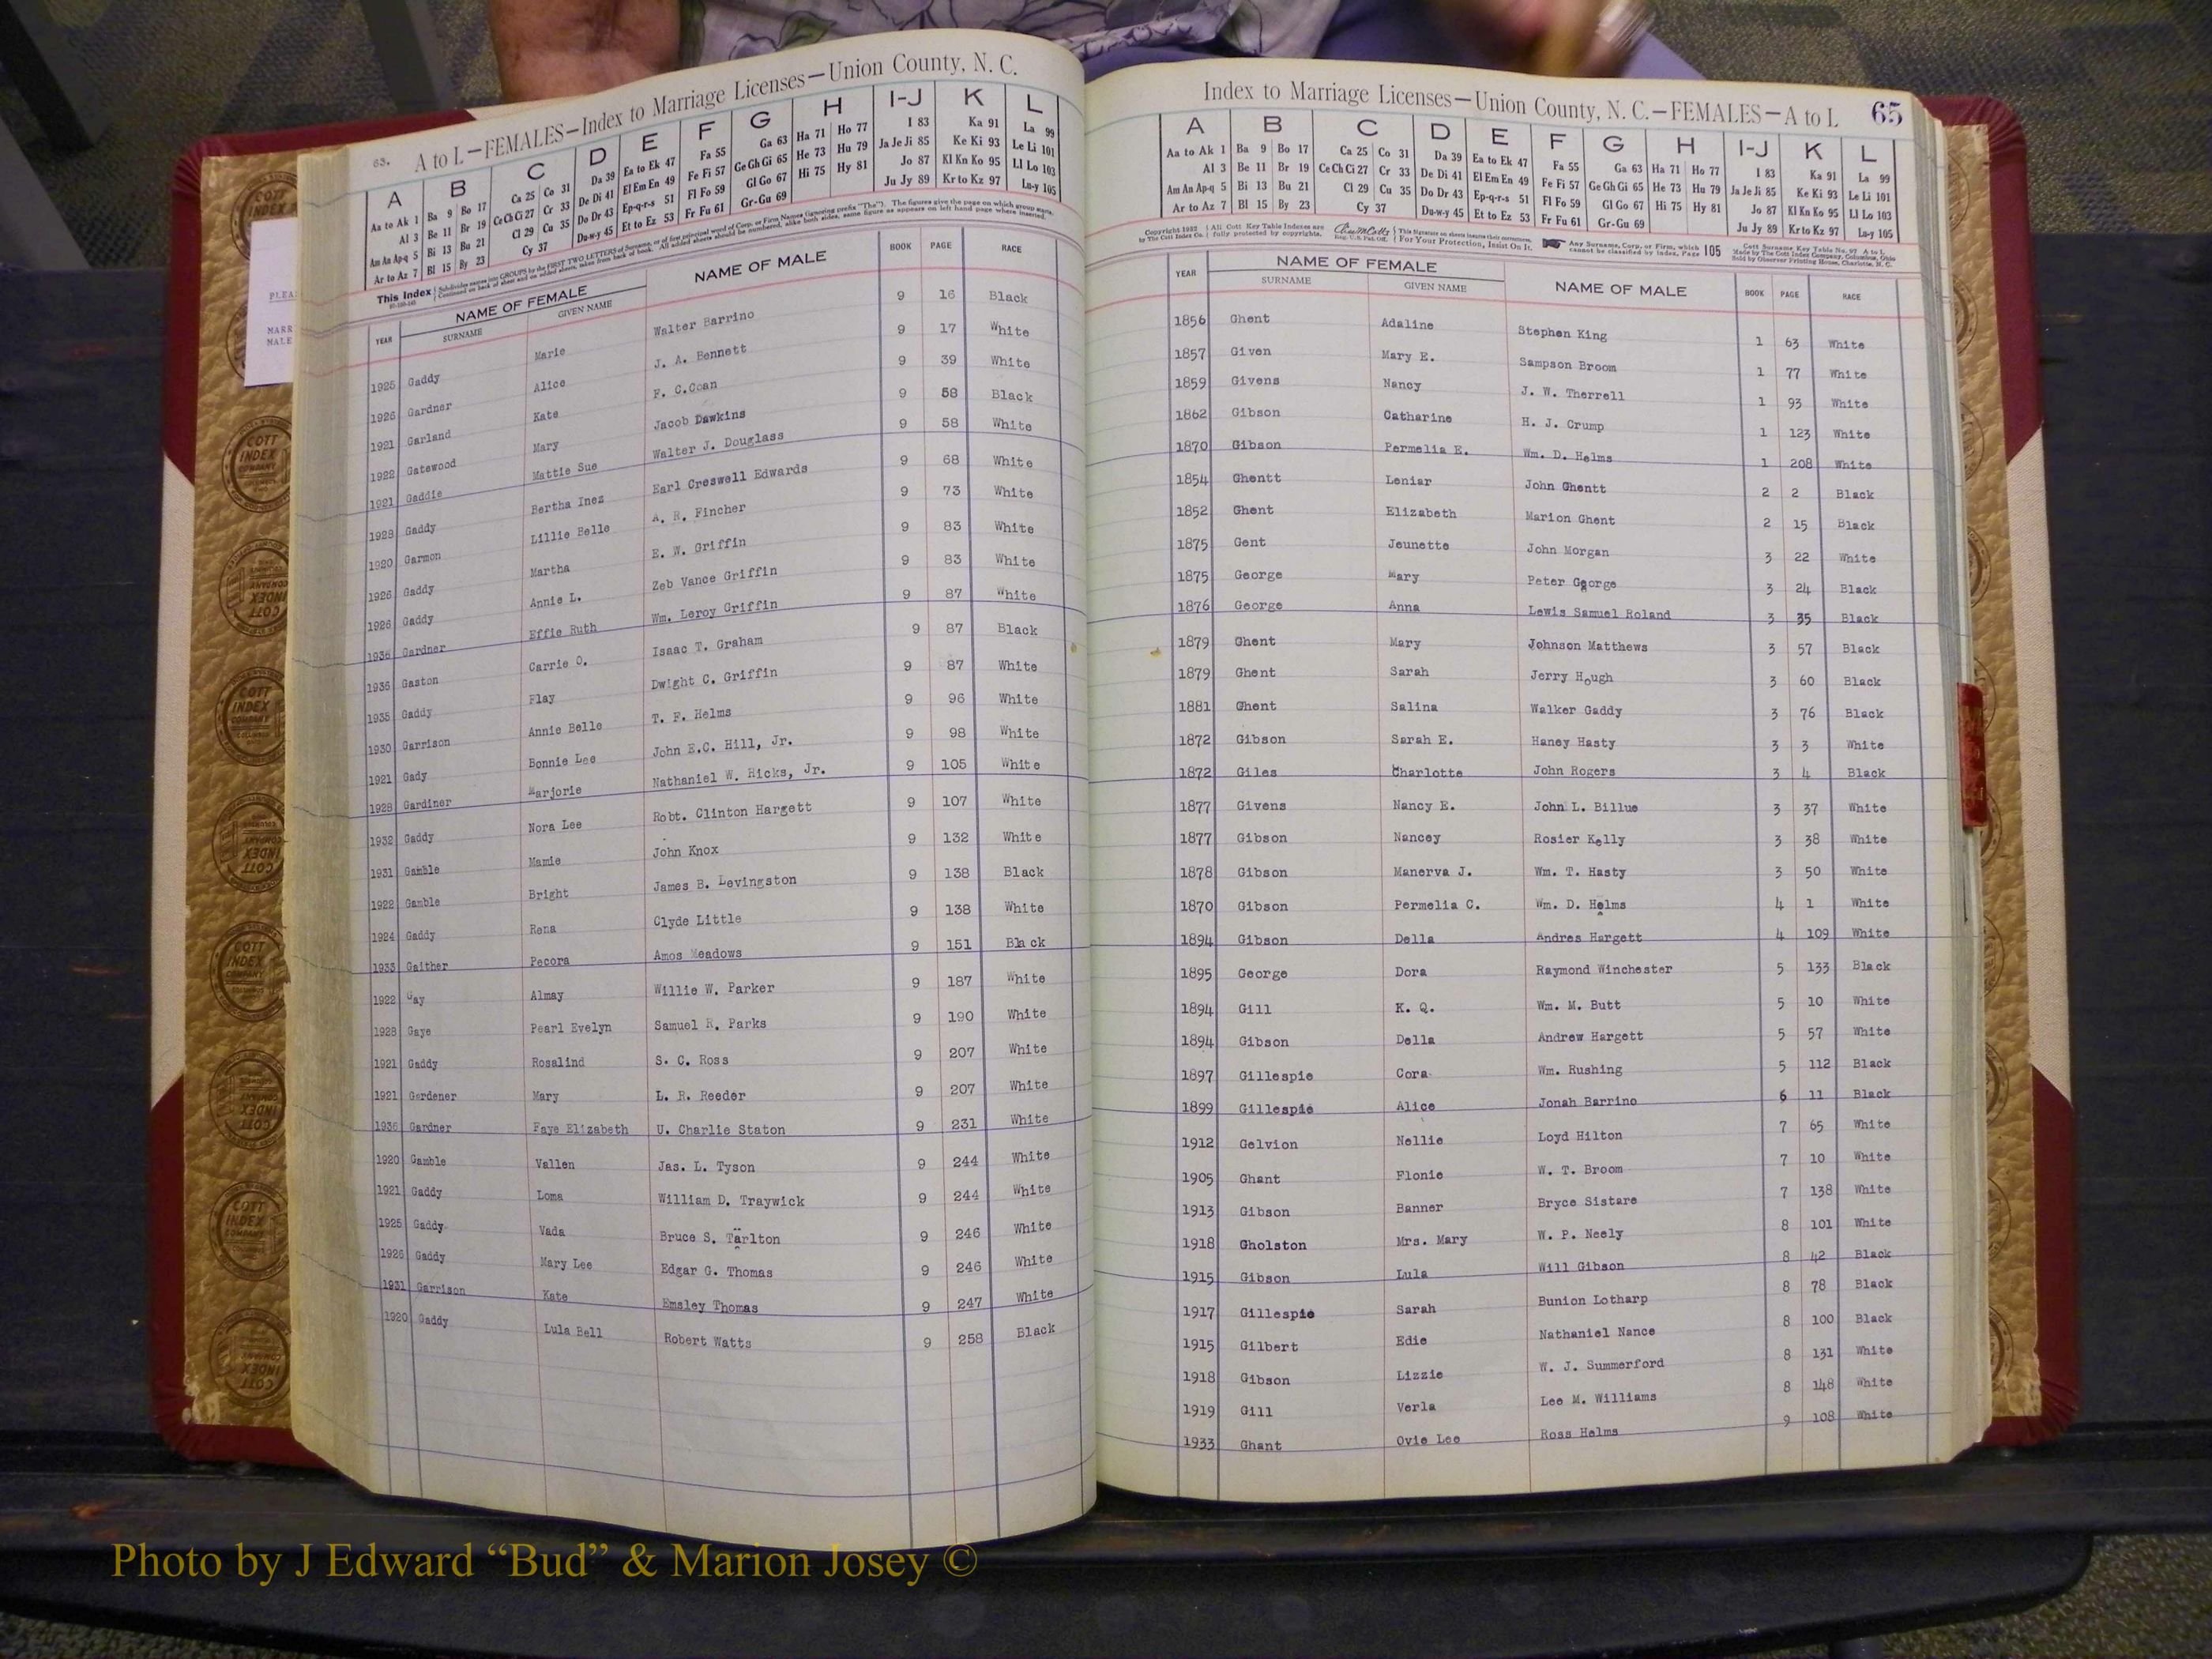 63. A to L—FEMALES—Index to Marriage Licenses—Union County, N. C.
A B C D E F G H I-J K L
Aa to Ak 1 Ba 9 Bo 17 Ca 25 Co 31 Da 39 Ea to Ek 47 Fa 55 Ga 63 Ha 71 Ho 77 I 83 Ka 91 La 99
Al 3 Be 11 Br 19 Ce Ch Ci 27 Cr 33 De Di 41 El Em En 49 Fe Fi 57 Ge Gh Gi 65 He 73 Hu 79 Ja Je Ji 85 Ke Ki 93 Le Li 101
Am An Ap-q 5 Bi 13 Bu 21 Cl 29 Cu 35 Do Dr 43 Ep-q-r-s 51 Fl Fo 59 Gl Go 67 Hi 75 Hy 81 Jo 87 Kl Kn Ko 95 Ll Lo 103
Ar to Az 7 Bl 15 By 23 Cy 37 Du-w-y 45 Et to Ez 53 Fr Fu 61 Gr-Gu 69 Ju Jy 89 Kr to Kz 97 Lu-y 105
This Index Subdivides names into GROUPS by the FIRST TWO LETTERS of Surname, or of first principal word of Corp. or Firm Names (ignoring prefix "The"). The figures give the page on which group starts.
Continued on back of sheet and on added sheets, taken from back of book. All added sheets should be numbered, alike both sides, same figure as appears on left hand page where inserted.
YEAR NAME OF FEMALE SURNAME GIVEN NAME NAME OF MALE BOOK PAGE RACE
1925 Gaddy Marie Walter Barrino 9 16 Black
1926 Gardner Alice J. A. Bennett 9 17 White
1921 Garland Kate F. C.Coan 9 39 White
1922 Gatewood Mary Jacob Dawkins 9 58 Black
1921 Gaddie Mattie Sue Walter J. Douglass 9 58 White
1928 Gaddy Bertha Inez Earl Creswell Edwards 9 68 White
1920 Garmon Lillie Belle A. R. Fincher 9 73 White
1926 Gaddy Martha E. W. Griffin 9 83 White
1926 Gaddy Annie L. Zeb Vance Griffin 9 83 White
1936 Gardner Effie Ruth Wm. Leroy Griffin 9 87 White
1935 Gaston Carrie O. Isaac T. Graham 9 87 Black
1935 Gaddy Flay Dwight C. Griffin 9 87 White
1930 Garrison Annie Belle T. F. Helms 9 96 White
1921 Gady Bonnie Lee John E.C. Hill, Jr. 9 98 White
1928 Gardiner Marjorie Nathaniel W. Hicks, Jr. 9 105 White
1932 Gaddy Nora Lee Robt. Clinton Hargett 9 107 White
1931 Gamble Mamie John Knox 9 132 White
1922 Gamble Bright James B. Levingston 9 138 Black
1924 Gaddy Rena Clyde Little 9 138 White
1933 Gaither Pecora Amos Meadows 9 151 Black
1922 Gay Almay Willie W. Parker 9 187 White
1928 Gaye Pearl Evelyn Samuel R. Parks 9 190 White
1921 Gaddy Rosalind S. C. Ross 9 207 White
1921 Gardener Mary L. R. Reeder 9 207 White
1936 Gardner Faye Elizabeth U. Charlie Staton 9 231 White
1920 Gamble Vallen Jas. L. Tyson 9 244 White
1921 Gaddy Loma William D. Traywick 9 244 White
1925 Gaddy Vada Bruce S. Tarlton 9 246 White
1926 Gaddy Mary Lee Edgar G. Thomas 9 246 White
1931 Garrison Kate Emsley Thomas 9 247 White
1920 Gaddy Lula Bell Robert Watts 9 258 Black
Index to Marriage Licenses—Union County, N. C.—FEMALES—A to L 65
A B C D E F G H I-J K L
Aa to Ak 1 Ba 9 Bo 17 Ca 25 Co 31 Da 39 Ea to Ek 47 Fa 55 Ga 63 Ha 71 Ho 77 I 83 Ka 91 La 99
Al 3 Be 11 Br 19 Ce Ch Ci 27 Cr 33 De Di 41 El Em En 49 Fe Fi 57 Ge Gh Gi 65 He 73 Hu 79 Ja Je Ji 85 Ke Ki 93 Le Li 101
Am An Ap-q 5 Bi 13 Bu 21 Cl 29 Cu 35 Do Dr 43 Ep-q-r-s 51 Fl Fo 59 Gl Go 67 Hi 75 Hy 81 Jo 87 Kl Kn Ko 95 Ll Lo 103
Ar to Az 7 Bl 15 By 23 Cy 37 Du-w-y 45 Et to Ez 53 Fr Fu 61 Gr-Gu 69 Ju Jy 89 Kr to Kz 97 Lu-y 105
Copyright 1932 by The Cott Index Co. All Cott Key Table Indexes are fully protected by copyrights. Reg. U.S. Pat. Off. This Signature on sheets insures their correctness. For Your Protection, Insist On It. Any Surname, Corp. or Firm, which cannot be classified by index, Page 105 Cott Surname Key Table No. 97 A to L Made by The Cott Index Company, Columbus, Ohio Sold by Observer Printing House, Charlotte, N. C.
YEAR NAME OF FEMALE SURNAME GIVEN NAME NAME OF MALE BOOK PAGE RACE
1856 Ghent Adaline Stephen King 1 63 White
1857 Given Mary E. Sampson Broom 1 77 White
1859 Givens Nancy J. W. Therrell 1 93 White
1862 Gibson Catharine H. J. Crump 1 123 White
1870 Gibson Permelia E. Wm. D. Helms 1 208 White
1854 Ghentt Leniar John Ghentt 2 2 Black
1852 Ghent Elizabeth Marion Ghent 2 15 Black
1875 Gent Jeunette John Morgan 3 22 White
1875 George Mary Peter George 3 24 Black
1876 George Anna Lewis Samuel Roland 3 35 Black
1879 Ghent Mary Johnson Matthews 3 57 Black
1879 Ghent Sarah Jerry Hough 3 60 Black
1881 Ghent Salina Walker Gaddy 3 76 Black
1872 Gibson Sarah E. Haney Hasty 3 3 White
1872 Giles Charlotte John Rogers 3 4 Black
1877 Givens Nancy E. John L. Billue 3 37 White
1877 Gibson Nancey Rosier Kelly 3 38 White
1878 Gibson Manerva J. Wm. T. Hasty 3 50 White
1870 Gibson Permelia C. Wm. D. Helms 4 1 White
1894 Gibson Della Andres Hargett 4 109 White
1895 George Dora Raymond Winchester 5 133 Black
1894 Gill K. Q. Wm. M. Butt 5 10 White
1894 Gibson Della Andrew Hargett 5 57 White
1897 Gillespie Cora Wm. Rushing 5 112 Black
1899 Gillespie Alice Jonah Barrino 6 11 Black
1912 Gelvion Nellie Loyd Hilton 7 65 White
1905 Ghant Flonie W. T. Broom 7 10 White
1913 Gibson Banner Bryce Sistare 7 138 White
1918 Gholston Mrs. Mary W. P. Neely 8 101 White
1915 Gibson Lula Will Gibson 8 42 Black
1917 Gillespie Sarah Bunion Lotharp 8 78 Black
1915 Gilbert Edie Nathaniel Nance 8 100 Black
1918 Gibson Lizzie W. J. Summerford 8 131 White
1919 Gill Verla Lee M. Williams 8 148 White
1933 Ghant Ovie Lee Ross Helms 9 108 White
COTT INDEX COMPANY
Photo by J Edward “Bud” & Marion Josey ©